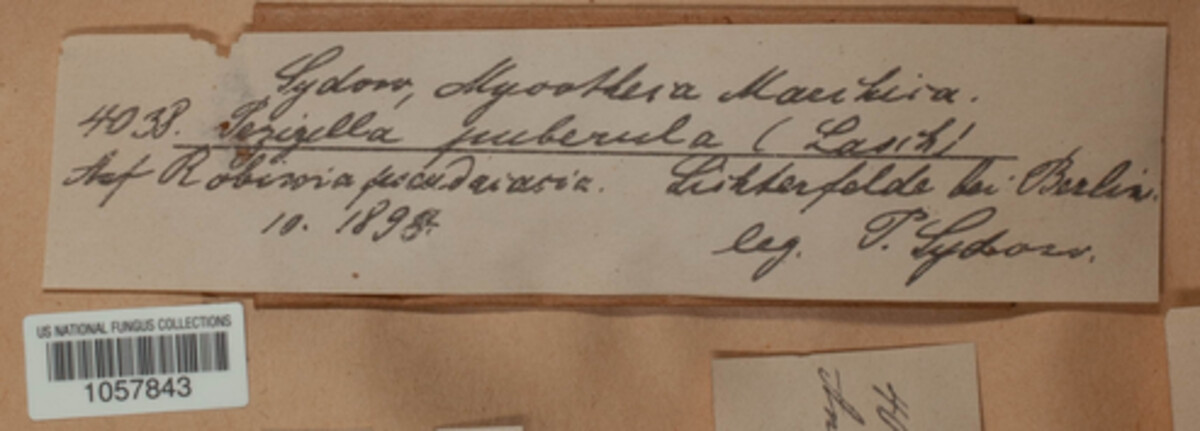 Sydow, Mycotheca Marchica.
4038. Pezizella puberula (Lasch)
Auf Robinia pseudacacia. Lichterfelde bei Berlin.
10. 189
leg. P. Sydow.
US NATIONAL FUNGUS COLLECTIONS
1057843